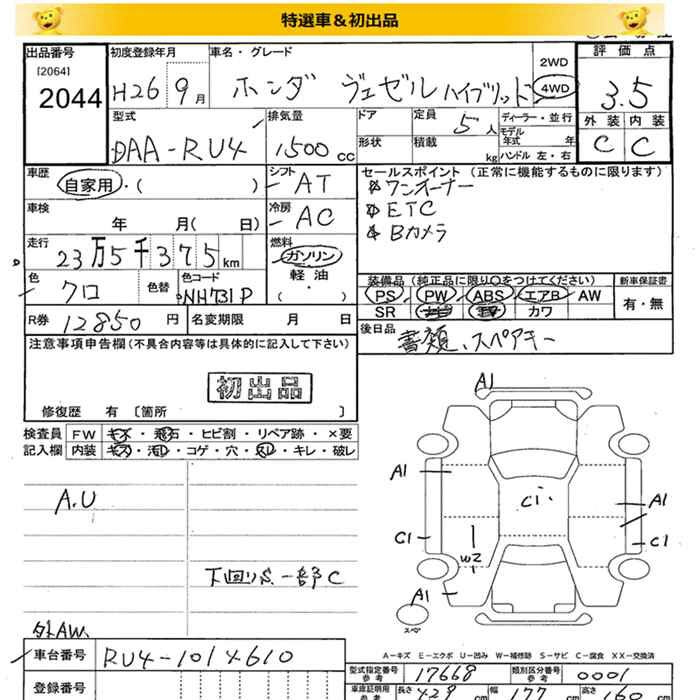 特選車&初出品
出品番号 初度登録年月 車名・グレード 2WD 評価点
[2064]
2044 H26 9月 ホンダ ヴェゼル ハイブリッド 4WD 3.5
型式 排気量 ドア 定員 ディーラー・並行 外装 内装
DAA-RU4 1500cc 5人 モデル年式 年 C C
形状 積載 kg ハンドル 左・右
車歴 シフト セールスポイント (正常に機能するものに限ります)
自家用・( ) AT ワンオーナー
車検 冷房 ETC
年 月( 日) AC Bカメラ
走行 燃料
23万5千375km ガソリン
色 色替 色コード 軽油 装備品 (純正品に限り○をつけてください) 新車保証書
クロ NH731P ( ・ ) PS PW ABS エアB AW 有・無
SR ナビ 革 カワ
R券 12850円 名変期限 月 日 後日品
書類、スペアキー
注意事項申告欄(不具合内容等は具体的に記入して下さい)
初出品
修復歴 有 [箇所 ]
検査員 FW キズ・飛石・ヒビ割・リペア跡・×要
記入欄 内装 キズ・汚レ・コゲ・穴・スレ・キレ・破レ
A1
A1
A.U
Ci
A1
C1
C1
W2
下回りS、一部C
A1
スペア
外AW、
A-キズ E-エクボ U-凹み W-補修跡 S-サビ C-腐食 XX-交換済
車台番号 RU4-1014610
型式指定番号 17668 類別区分番号 0001
登録番号
車庫証明用 参考 長さ 429 cm 幅 177 cm 高さ 160 cm